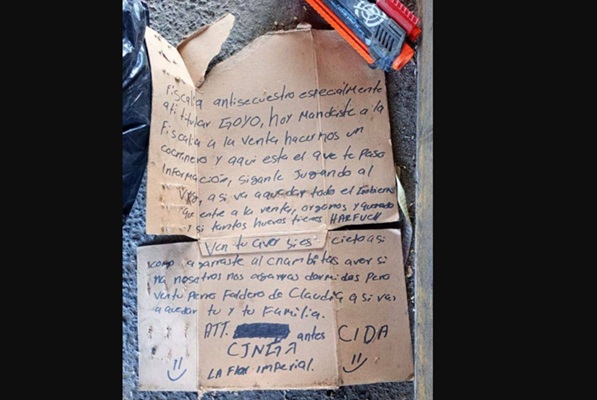 Fiscalia antisecuestro especialmente
ati titular GOYO, hoy Mandaste a la
Fiscalia a la venta hacernos un
cochinero y aqui esta el que te Paso
Informacion, siganle Jugando al
Vrg, asi va aquedar todo el Gobierno
que entre a la venta, orgamos y
y si tantos huevos tienes HARFUCH
Ven tu aver si es cieto asi
como agarraste al chambitos aver si
na nosotros nos agarras dormidos Pero
ven tu Perro Faldero de Claudia asi vas
aquedar tu y tu Familia.
ATT. antes CIDA
CJNG
LA Flor imperial.